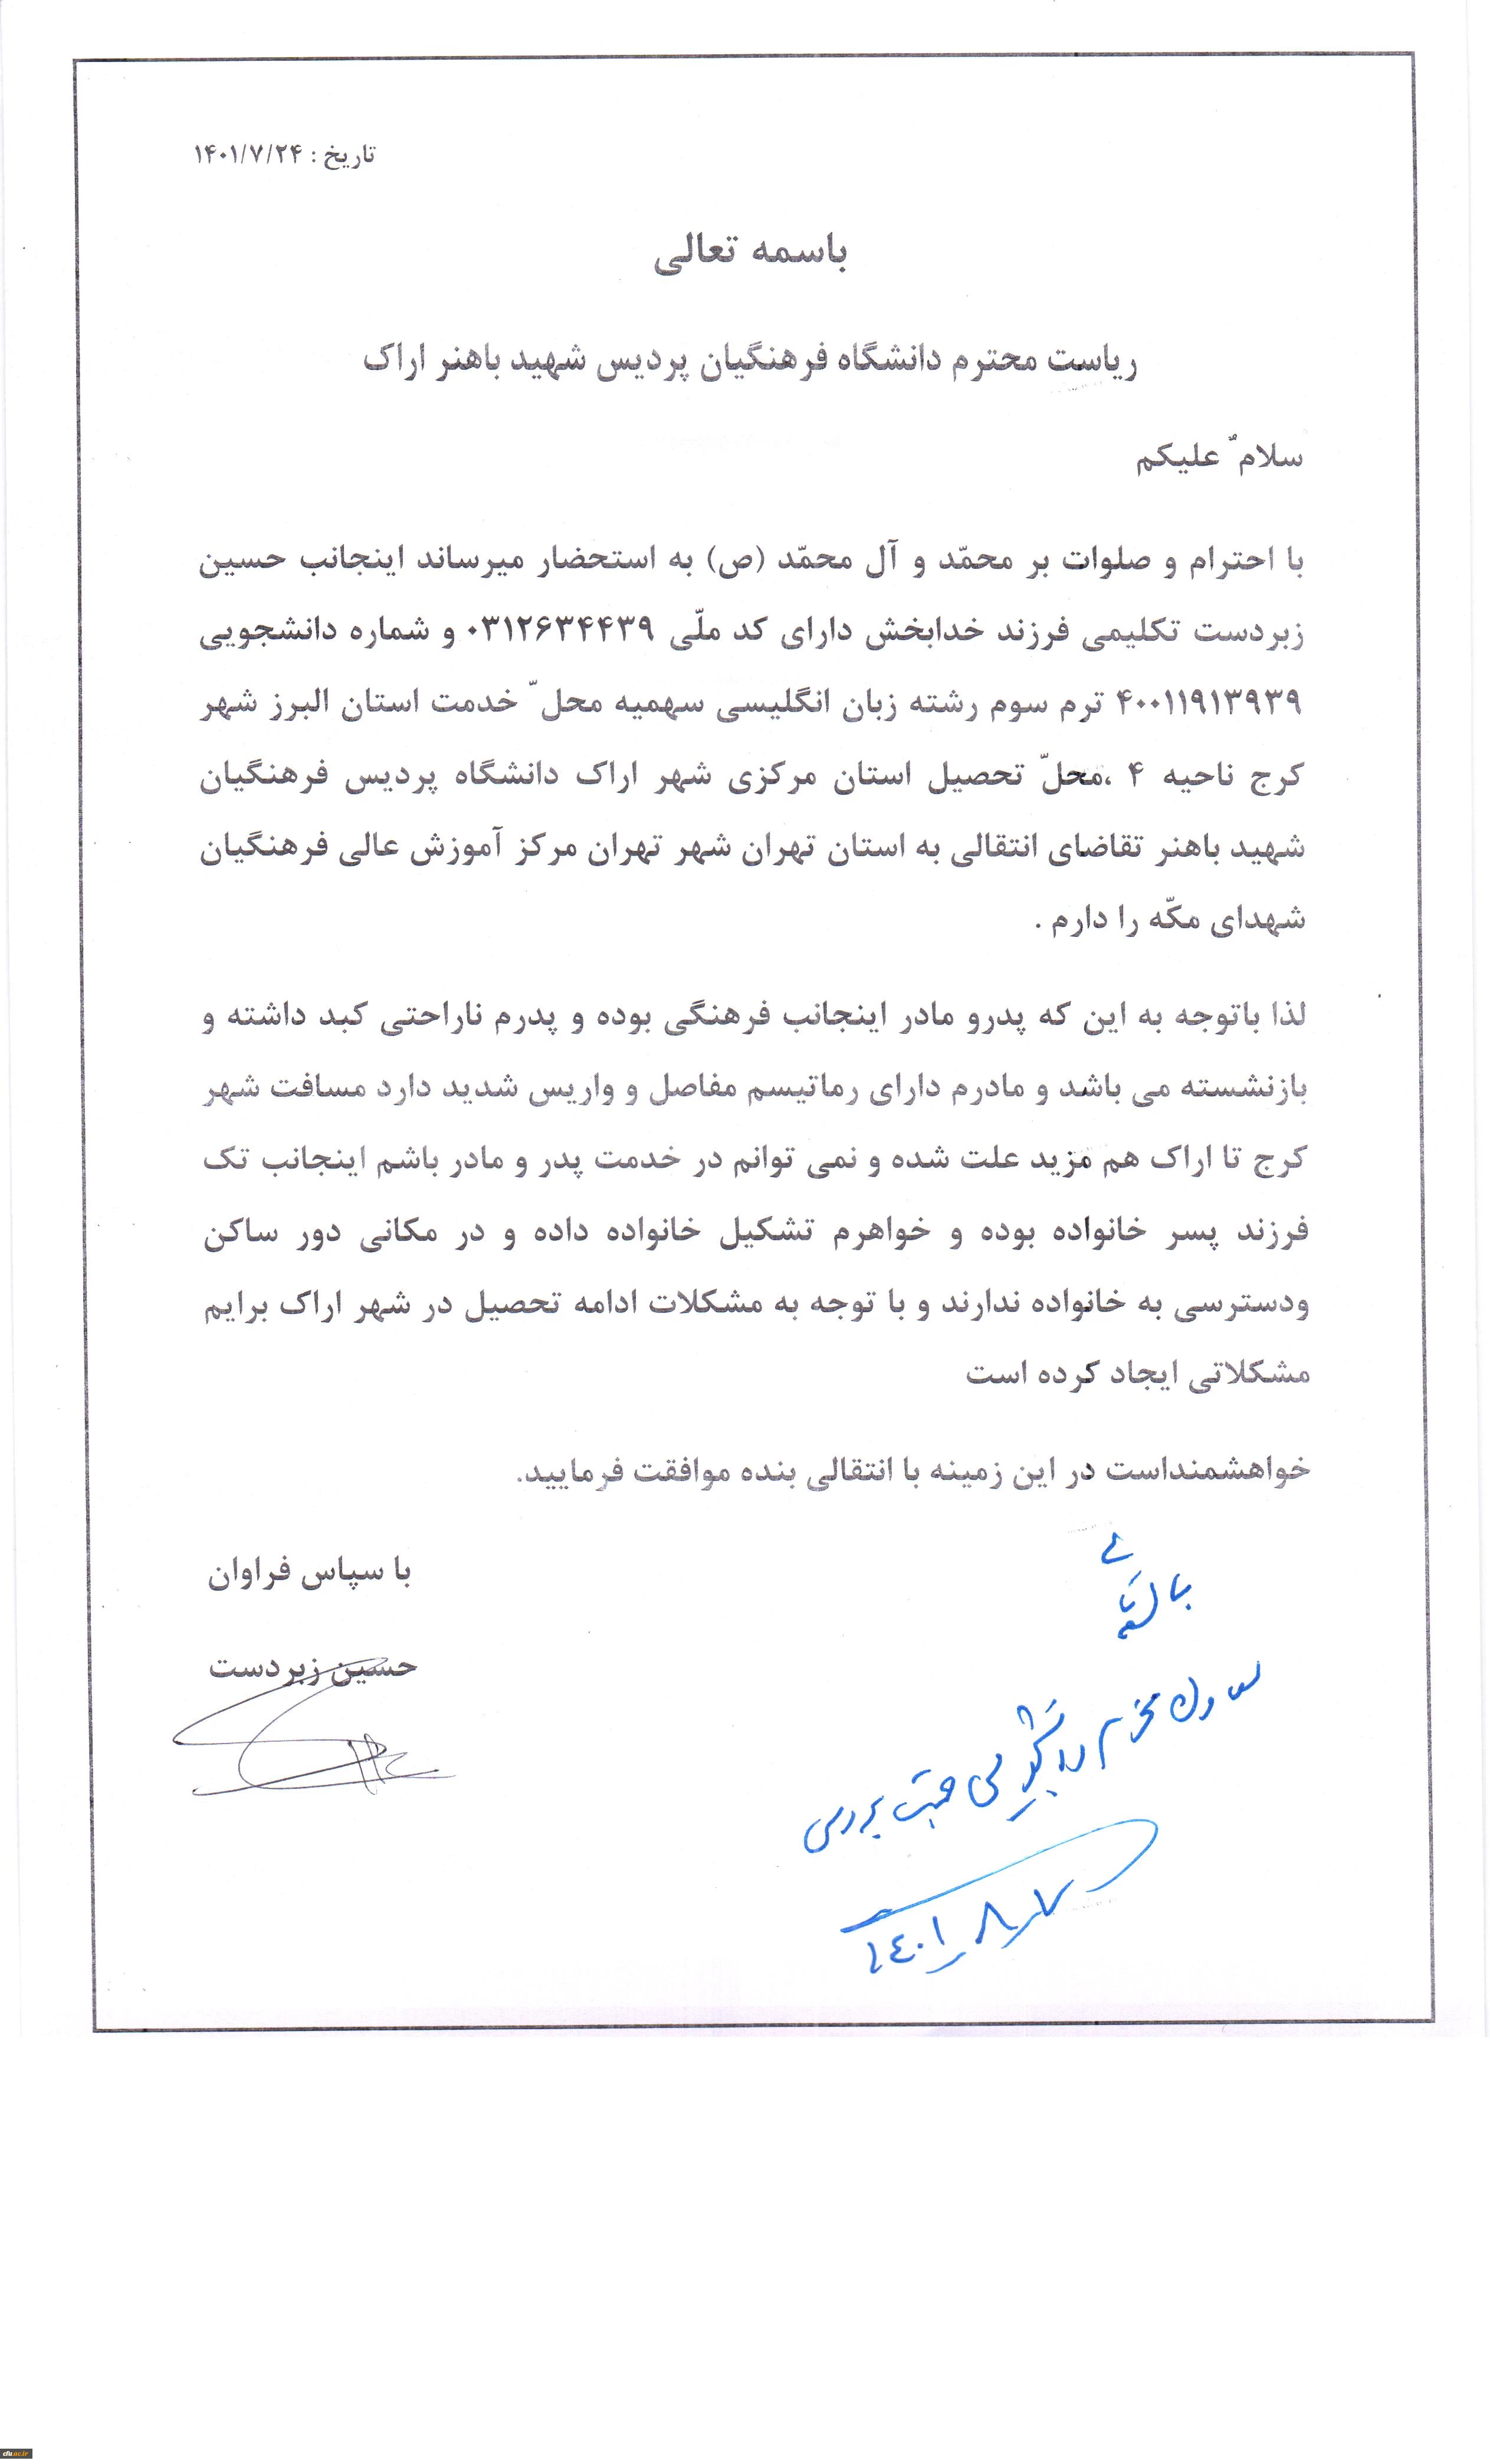 تاریخ : ۱۴۰۱/۷/۲۴
باسمه تعالی
ریاست محترم دانشگاه فرهنگیان پردیس شهید باهنر اراک
سلامٌ علیکم
با احترام و صلوات بر محمّد و آل محمّد (ص) به استحضار میرساند اینجانب حسین
زبردست تکلیمی فرزند خدابخش دارای کد ملّی ۰۳۱۲۶۳۴۴۳۹ و شماره دانشجویی
۴۰۰۱۱۹۱۳۹۳۹ ترم سوم رشته زبان انگلیسی سهمیه محلّ خدمت استان البرز شهر
کرج ناحیه ۴ ،محلّ تحصیل استان مرکزی شهر اراک دانشگاه پردیس فرهنگیان
شهید باهنر تقاضای انتقالی به استان تهران شهر تهران مرکز آموزش عالی فرهنگیان
شهدای مکّه را دارم .
لذا باتوجه به این که پدرو مادر اینجانب فرهنگی بوده و پدرم ناراحتی کبد داشته و
بازنشسته می باشد و مادرم دارای رماتیسم مفاصل و واریس شدید دارد مسافت شهر
کرج تا اراک هم مزید علت شده و نمی توانم در خدمت پدر و مادر باشم اینجانب تک
فرزند پسر خانواده بوده و خواهرم تشکیل خانواده داده و در مکانی دور ساکن
ودسترسی به خانواده ندارند و با توجه به مشکلات ادامه تحصیل در شهر اراک برایم
مشکلاتی ایجاد کرده است
خواهشمنداست در این زمینه با انتقالی بنده موافقت فرمایید.
با سپاس فراوان
حسین زبردست
محترم دانشجویی جهت بررسی
۱۴۰۱/۸/۷
cfu.ac.ir